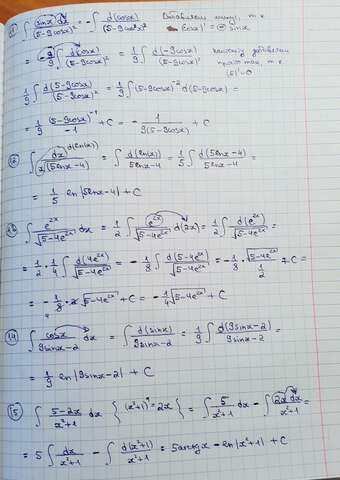 11) ∫ sinx dx/(5-9cosx)² = -∫ d(cosx)/(5-9cosx)² т к
= -∫ d(cosx)/(5-9cosx)² = 1/9 ∫ d(-9cosx)/(5-9cosx)² (5)' = 0
1/9 ∫ d(5-9cosx)/(5-9cosx)² = 1/9 ∫ (5-9cosx)⁻² d(5-9cosx) =
= 1/9 (5-9cosx)⁻¹/-1 + C = -1/(9(5-9cosx)) + C
∫ dx/(x(5lnx-4)) d(ln(x)) = ∫ d(ln(x))/(5lnx-4) = 1/5 ∫ d(5lnx-4)/(5lnx-4) =
= 1/5 ln|5lnx-4| + C
∫ e²ˣ/√(5-4e²ˣ) dx = 1/2 ∫ e²ˣ/√(5-4e²ˣ) d(2x) = 1/2 ∫ d(e²ˣ)/√(5-4e²ˣ) =
= 1/2 · 1/4 ∫ d(4e²ˣ)/√(5-4e²ˣ) = -1/8 ∫ d(5-4e²ˣ)/√(5-4e²ˣ) = -1/8 · √(5-4e²ˣ)/(1/2) + C =
= -1/8 · 2√(5-4e²ˣ) + C = -1/4 √(5-4e²ˣ) + C
14) ∫ cosx/(9sinx-2) dx = ∫ d(sinx)/(9sinx-2) = 1/9 ∫ d(9sinx-2)/(9sinx-2) =
= 1/9 ln|9sinx-2| + C
15) ∫ (5-2x)/(x²+1) dx {(x²+1)' = 2x} = ∫ 5/(x²+1) - ∫ 2x dx/(x²+1) =
= 5∫ dx/(x²+1) - ∫ d(x²+1)/(x²+1) = 5arctgx - ln|x²+1| + C